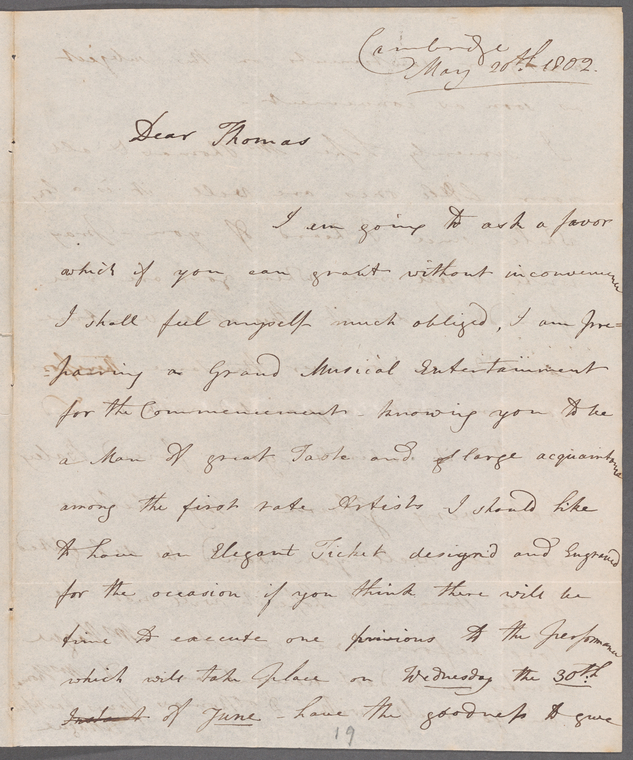 Cambridge
May 20th. 1802.
Dear Thomas
I am going to ask a favor
which if you can grant without inconvenience
I shall feel myself much obliged, I am pre=
pairing a Grand Musical Entertainment
for the Commencement - knowing you to be
a Man of great Taste and of large acquaintance
among the first rate Artists I should like
to have an Elegant Ticket design'd and Engraved
for the occasion if you think there will be
time to execute one privious to the performance
which will take place on Wednesday the 30th.
Instant of June - have the goodness to give
19